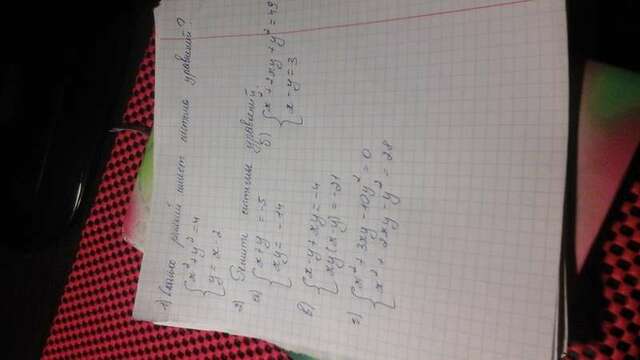 1) Сколько решений имеет система уравнений?
{x² + y² = 4
{y = x - 2
2) Решите системы уравнений.
а) {x + y = -5
{xy = -14
б) {x² + 2xy + y² = 49
{x - y = 3
в) {x - y + xy = -4
{xy(x - y) = -21
г) {x² + 3xy - 10y² = 0
{x² + 2xy - y² = 28